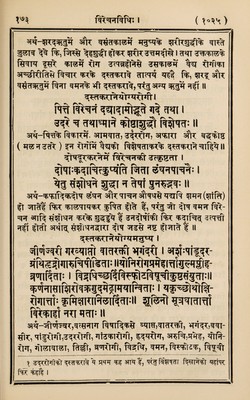 १७३ विरेचनविधिः। (१०२५)
अर्थ–शरदऋतुमें और वसंतकालमें मनुष्यके शरीरशुद्धीके वास्ते
जुलाब देवे कि, जिससे देहशुद्धी होकर शरीर उत्तमदीखे। तथा उक्तकालके
सिवाय दूसरे कालमें रोग उत्पन्नहोनेसे उसकालमें वैद्य रोगीका
अच्छीरीतिसे विचार करके दस्तकरावे तात्पर्य यहहै कि, शरद् और
वसंतऋतुमें बिना वमनके भी दस्तकरावे, परंतु अन्य ऋतुमें नहीं॥
दस्तकरानेयोग्यरोगी।
पित्ते विरेचनं दद्यादामोद्भूते गदे तथा।
उदरे च तथाध्माने कोष्ठाशुद्धौ विशेषतः॥
अर्थ–पित्तके विकारमें, आमवात, उदररोग, अफारा और बद्धकोष्ठ
(मल न उतरे) इन रोगोंमें वैद्यको विशेषताकरके दस्तकराने चाहिये॥
दोषदूरकरनेमें विरेचनकी उत्कृष्टता।
दोषाःकदाचित्कुप्यंति जिता लंघनपाचनैः।
येतु संशोधनैः शुद्धा न तेषां पुनरुद्भवः॥
अर्थ–कफादिकदोष लंघन और पाचन औषधसे यद्यपि शमन(शांति)
हो जातेहैं फिर कालपायकर कुपित होते हैं, परंतु जो दोष वमन विरे-
चन आदि संशोधन करके शुद्धहुये हैं उनदोषोंकी फिर कदाचित् उत्पत्ती
नहीं होती। अर्थात् संशोधनद्वारा दोष जडसे नष्ट होजाते हैं॥
दस्तकरानेअयोग्यमनुष्य।
जीर्णज्वरी गरव्याप्तो वातरक्ती भगंदरी। अर्शःपांडूदर-
ग्रंथिहृद्रोगारुचिपीडिताः॥योनिरोगप्रमेहार्तागुल्मप्लीह-
व्रणार्दिताः। विद्रधिच्छर्दिविस्फोटविषूचीकुष्ठसंयुताः॥
कर्णनासाशिरोवक्त्रगुदमेढ्रामयान्विताः। यकृच्छोथाक्षि-
रोगार्त्ताः कृमिक्षारानिलार्दिताः॥ शूलिनो मूत्रघातार्त्ता
विरेकार्हा नरा मताः॥
अर्थ–जीर्णज्वर,वत्सनाग विषादिकसे व्याप्त,वातरक्ती, भगंदर,बवा-
सीर, पांडुरोगी,उदररोगी, गांठकारोगी, हृदयरोगी, अरुचि,प्रमेह, योनि-
रोग, गोलावाला, तिल्ली, व्रणरोगी, विद्रधि, वमन, विस्फोटक, विषूची
१ उदररोगीको दस्तकरावे ये प्रथम कह आये हैं, परंतु विशेषता दिखानेको यहांपर
फिर कहाहै।